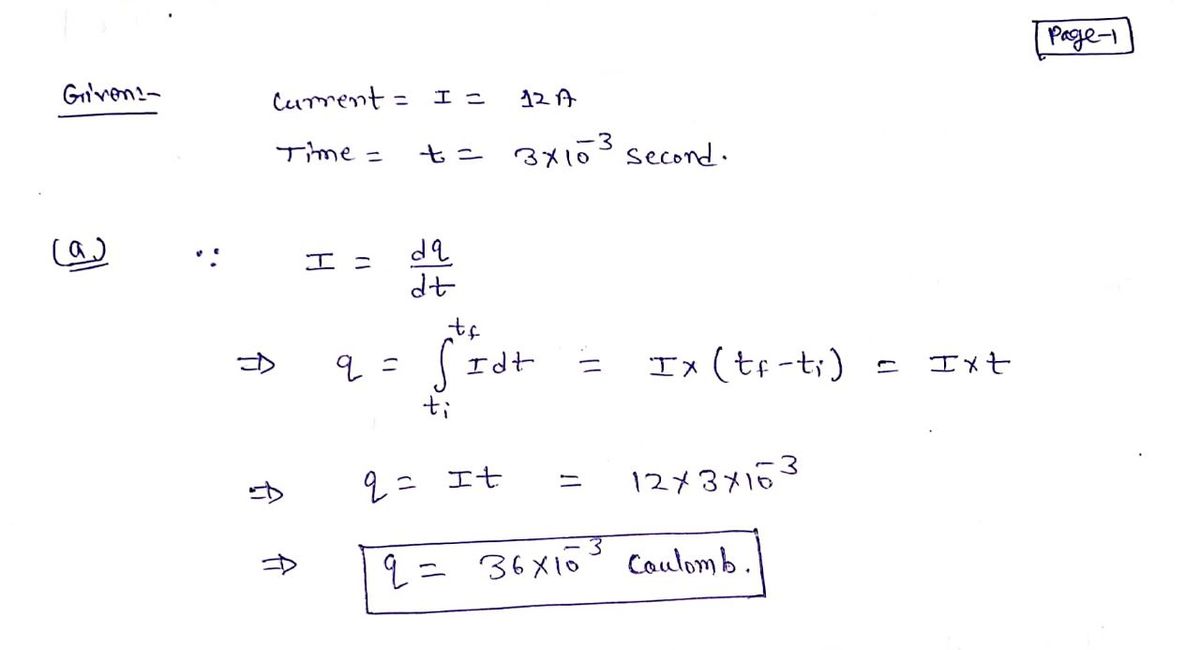 Page-1
Given:- Current = I = 12 A
Time = t = 3×10⁻³ second.
(a) ∵ I = dq/dt
⇒ q = ∫ₜᵢᵗᶠ I dt = I×(tf-ti) = I×t
⇒ q = It = 12×3×10⁻³
⇒ q = 36×10⁻³ Coulomb.